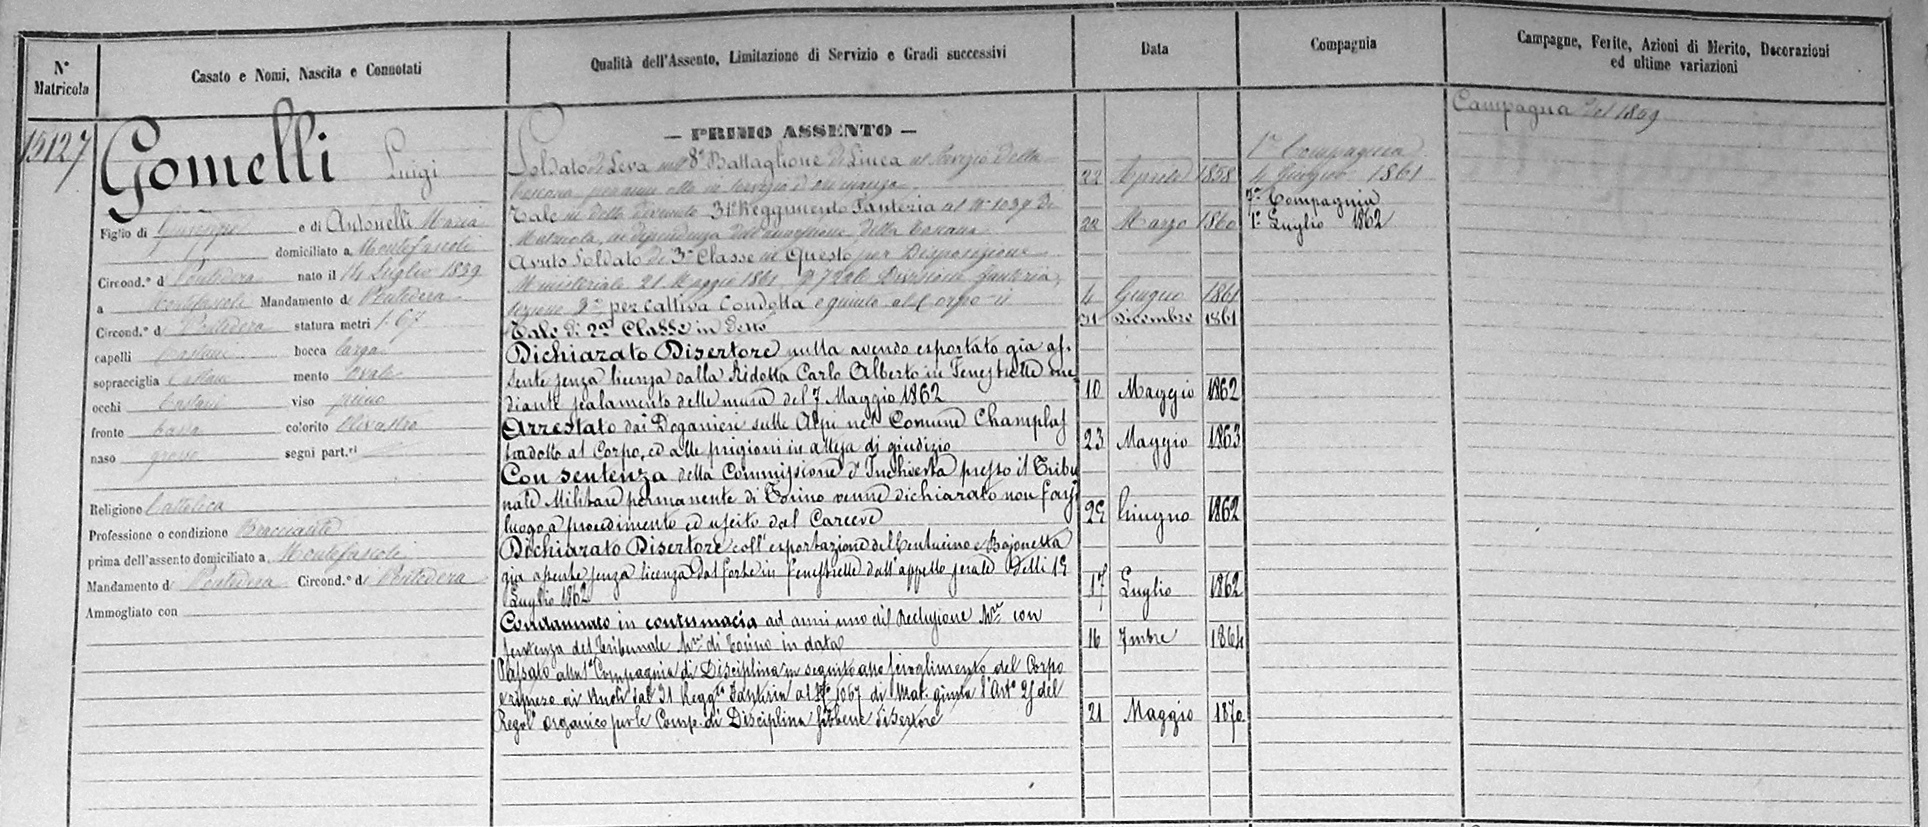 N° Matricola
Casato e Nomi, Nascita e Connotati
Qualità dell'Assento, Limitazione di Servizio e Gradi successivi
Data
Compagnia
Campagne, Ferite, Azioni di Merito, Decorazioni
ed ultime variazioni
15127
Gomelli Luigi
Figlio di Giuseppe e di Antonelli Maria
domiciliato a Montefascoli
Circond.° d Pontedera nato il 14 Luglio 1839
a Montefascoli Mandamento d Pontedera
Circond.° d Pontedera statura metri 1.67
capelli Castani bocca larga
sopracciglia Castani mento Ovale
occhi Castani viso pieno
fronte bassa colorito Olivastro
naso grosso segni part.ri
Religione Cattolica
Professione o condizione Bracciante
prima dell'assento domiciliato a Montefascoli
Mandamento d Pontedera Circond.° d Pontedera
Ammogliato con
— PRIMO ASSENTO —
Soldato di Leva nell' 8° Battaglione di Linea al Servizio della
Toscana per anni otto in servizio d'ordinanza 22 Aprile 1858
Tale in detto divenuto 31° Reggimento Fanteria al N° 1039 di
Matricola, in dipendenza dell'annessione della Toscana 22 Marzo 1860
Avuto Soldato di 3a Classe in Questo per Disposizione
Ministeriale 21 Maggio 1861 Divisione Fanteria,
sezione 2a per Cattiva Condotta e giunto al Corpo il 4 Giugno 1861
Tale di 2a Classe in Detto 31 Dicembre 1861
Dichiarato Disertore nulla avendo esportato già as-
sente senza licenza dalla Ridotta Carlo Alberto in Fenestrelle me
diante scalamento delle mura del 7 Maggio 1862 10 Maggio 1862
Arrestato dai Doganieri sulle Alpi nel Comune Champlas
tradotto al Corpo, ed alle prigioni in attesa di giudizio 23 Maggio 1863
Con sentenza della Commissione d'Inchiesta presso il Tribu
nale Militare permanente di Torino venne dichiarato non farsi
luogo a procedimento ed uscito dal Carcere 29 Giugno 1862
Dichiarato Disertore coll'esportazione del Centurino e Bajonetta
già assente senza licenza dal forte in Fenestrelle dall'appello serale delli 15
Luglio 1862 17 Luglio 1862
Condannato in contumacia ad anni uno di Reclusione Mre con
sentenza del Tribunale Mre di Torino in data 16 7mbre 1864
Passato alla 1a Compagnia di Disciplina in seguito allo scioglimento del Corpo
e rimesso ai Ruoli dal 31 Reggto Fanteria al N° 1067 di Mat. giusta l'Arto 29 del
Regolo Organico per le Comp. di Disciplina sebbene disertore 21 Maggio 1870
1a Compagnia
4 Giugno 1861
7a Compagnia
1° Luglio 1862
Campagna del 1859